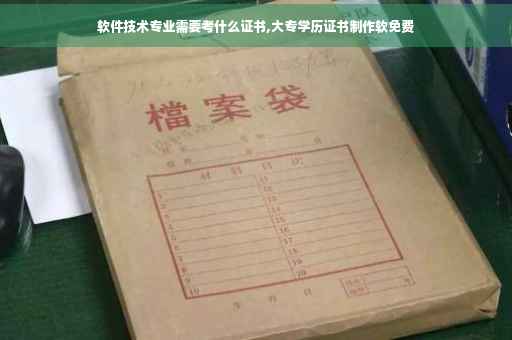 软件技术专业需要考什么证书,大专学历证书制作软免费
檔案袋
材料目次
1 11
2 12
3 13
4 14
5 15
6 16
7 17
8 18
9 19
10 20
年 月 日